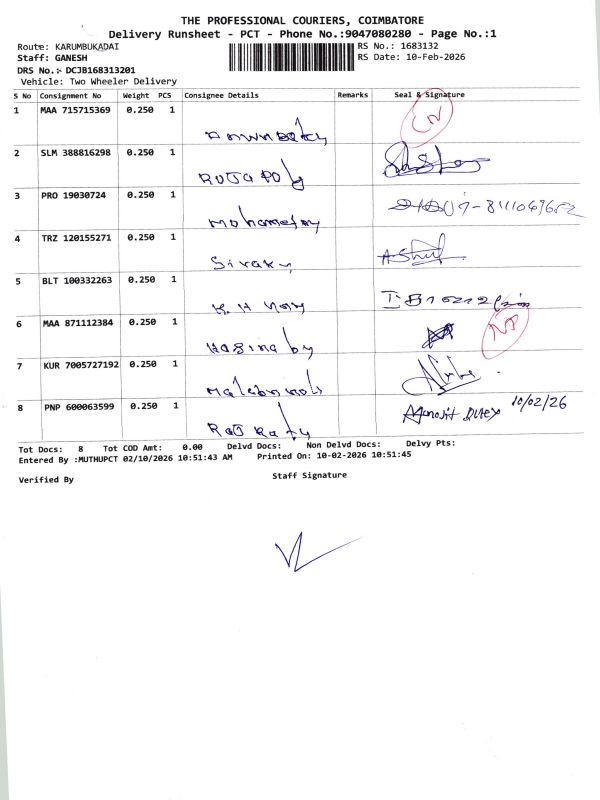 THE PROFESSIONAL COURIERS, COIMBATORE
Delivery Runsheet - PCT - Phone No.:9047080280 - Page No.:1
Route: KARUMBUKADAI RS No.: 1683132
Staff: GANESH RS Date: 10-Feb-2026
DRS No.:- DCJB168313201
Vehicle: Two Wheeler Delivery
S No Consignment No Weight PCS Consignee Details Remarks Seal & Signature
1 MAA 715715369 0.250 1
2 SLM 388816298 0.250 1
3 PRO 19030724 0.250 1
4 TRZ 120155271 0.250 1
5 BLT 100332263 0.250 1
6 MAA 871112384 0.250 1
Hasina by
7 KUR 7005727192 0.250 1
8 PNP 600063599 0.250 1 10/02/26
Tot Docs: 8 Tot COD Amt: 0.00 Delvd Docs: Non Delvd Docs: Delvy Pts:
Entered By :MUTHUPCT 02/10/2026 10:51:43 AM Printed On: 10-02-2026 10:51:45
Verified By Staff Signature